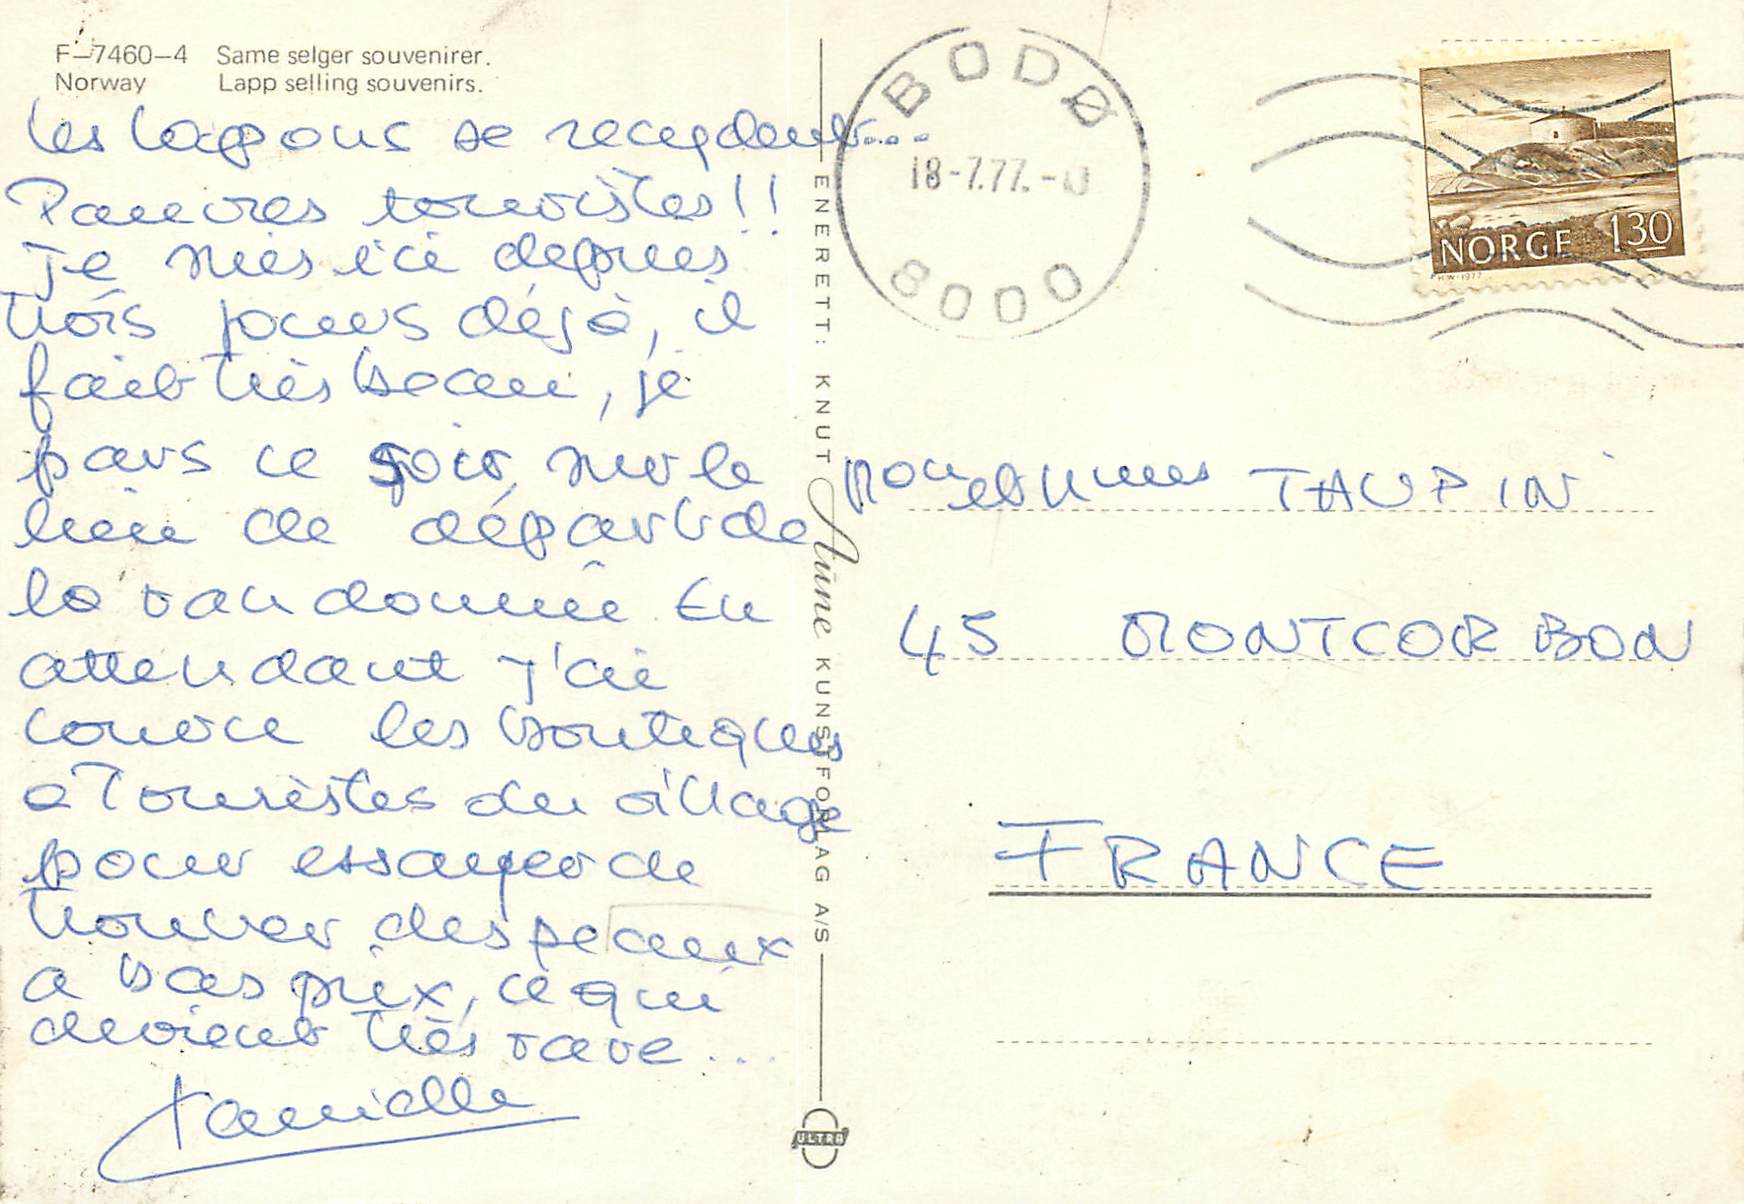 F–7460–4 Same selger souvenirer.
Norway Lapp selling souvenirs.
les lapons se
Pauvres touristes!!
Je suis ici depuis
trois jours déjà, il
fait très beau, je
pars ce soir, sur le
lieu de départ de
la randonnée. En
attendant j'ai
couru les boutiques
a Touristes du village
pour essayer de
trouver des peaux
a bas prix, ce qui
devient très rare...
Danielle
ENERETT: KNUT Aune KUNSTFORLAG A/S
ULTRA
BODØ
18-7.77.-
8000
NORGE 130
H.W-1977
TAUPIN
45 MONTCORBON
FRANCE